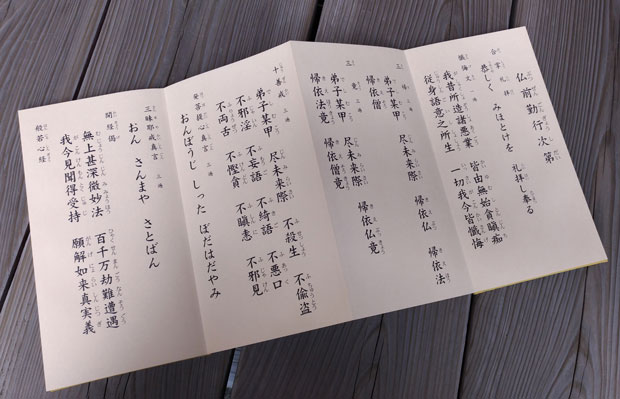 仏前勤行次第
合掌礼拝
恭しく みほとけを 礼拝し奉る
懺悔文 一遍
我昔所造諸悪業 皆由無始貪瞋痴
従身語意之所生 一切我今皆懺悔
三帰 三遍
弟子某甲 尽未来際 帰依仏 帰依法
帰依僧
三竟 三遍
弟子某甲 尽未来際 帰依仏竟
帰依法竟 帰依僧竟
十善戒 三遍
弟子某甲 尽未来際 不殺生 不偸盗
不邪淫 不妄語 不綺語 不悪口
不両舌 不慳貪 不瞋恚 不邪見
発菩提心真言 三遍
おんぼうじ しった ぼだはだやみ
三昧耶戒真言 三遍
おん さんまや さとばん
開経偈
無上甚深微妙法 百千万劫難遭遇
我今見聞得受持 願解如来真実義
般若心経